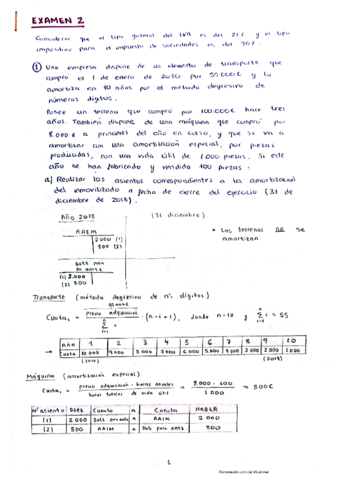 EXAMEN 2
Considerar que el tipo general del IVA es del 21% y el tipo
impositivo para el impuesto de sociedades es del 30%.
① Una empresa dispone de un elemento de transporte que
compró el 1 de enero de 2010 por 55.000€ y lo
amortiza en 10 años por el método degresivo de
números dígitos.
Posee un terreno que compró por 100.000€ hace tres
años. También dispone de una máquina que compró por
8.000€ a principios del año en curso, y que se va a
amortizar con una amortización especial, por piezas
producidas, con una vida útil de 1.000 piezas. Si este
año se han fabricado y vendido 100 piezas:
a) Realizar los asientos correspondientes a la amortización
del inmovilizado a fecha de cierre del ejercicio (31 de
diciembre de 2018).
Año 2018 (31 diciembre)
AAIM
2000 (1)
800 (2)
* Los terrenos no se
amortizan
Dot. para
(1) 2.000
(2) 800
Transporte (método degresivo de nº dígitos)
Cuota₁ = precio adquisición · (n-i+1), donde n=10 y Σ i = 55
Año 1 2 3 4 5 6 7 8 9 10
Cuota 10.000 9.000
(2010) (2018)
Máquina (amortización especial)
Cuota₁ = = 8.000 · 100 / 1.000 = 800€
Nº asiento DEBE Cuenta a Cuenta HABER
(1) 2000 a AAIM 2000
(2) 800 AAIM a 800
1